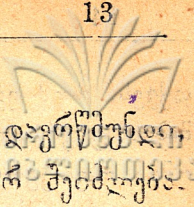 13
დავრწმუნდი,
რ შეიძლება.